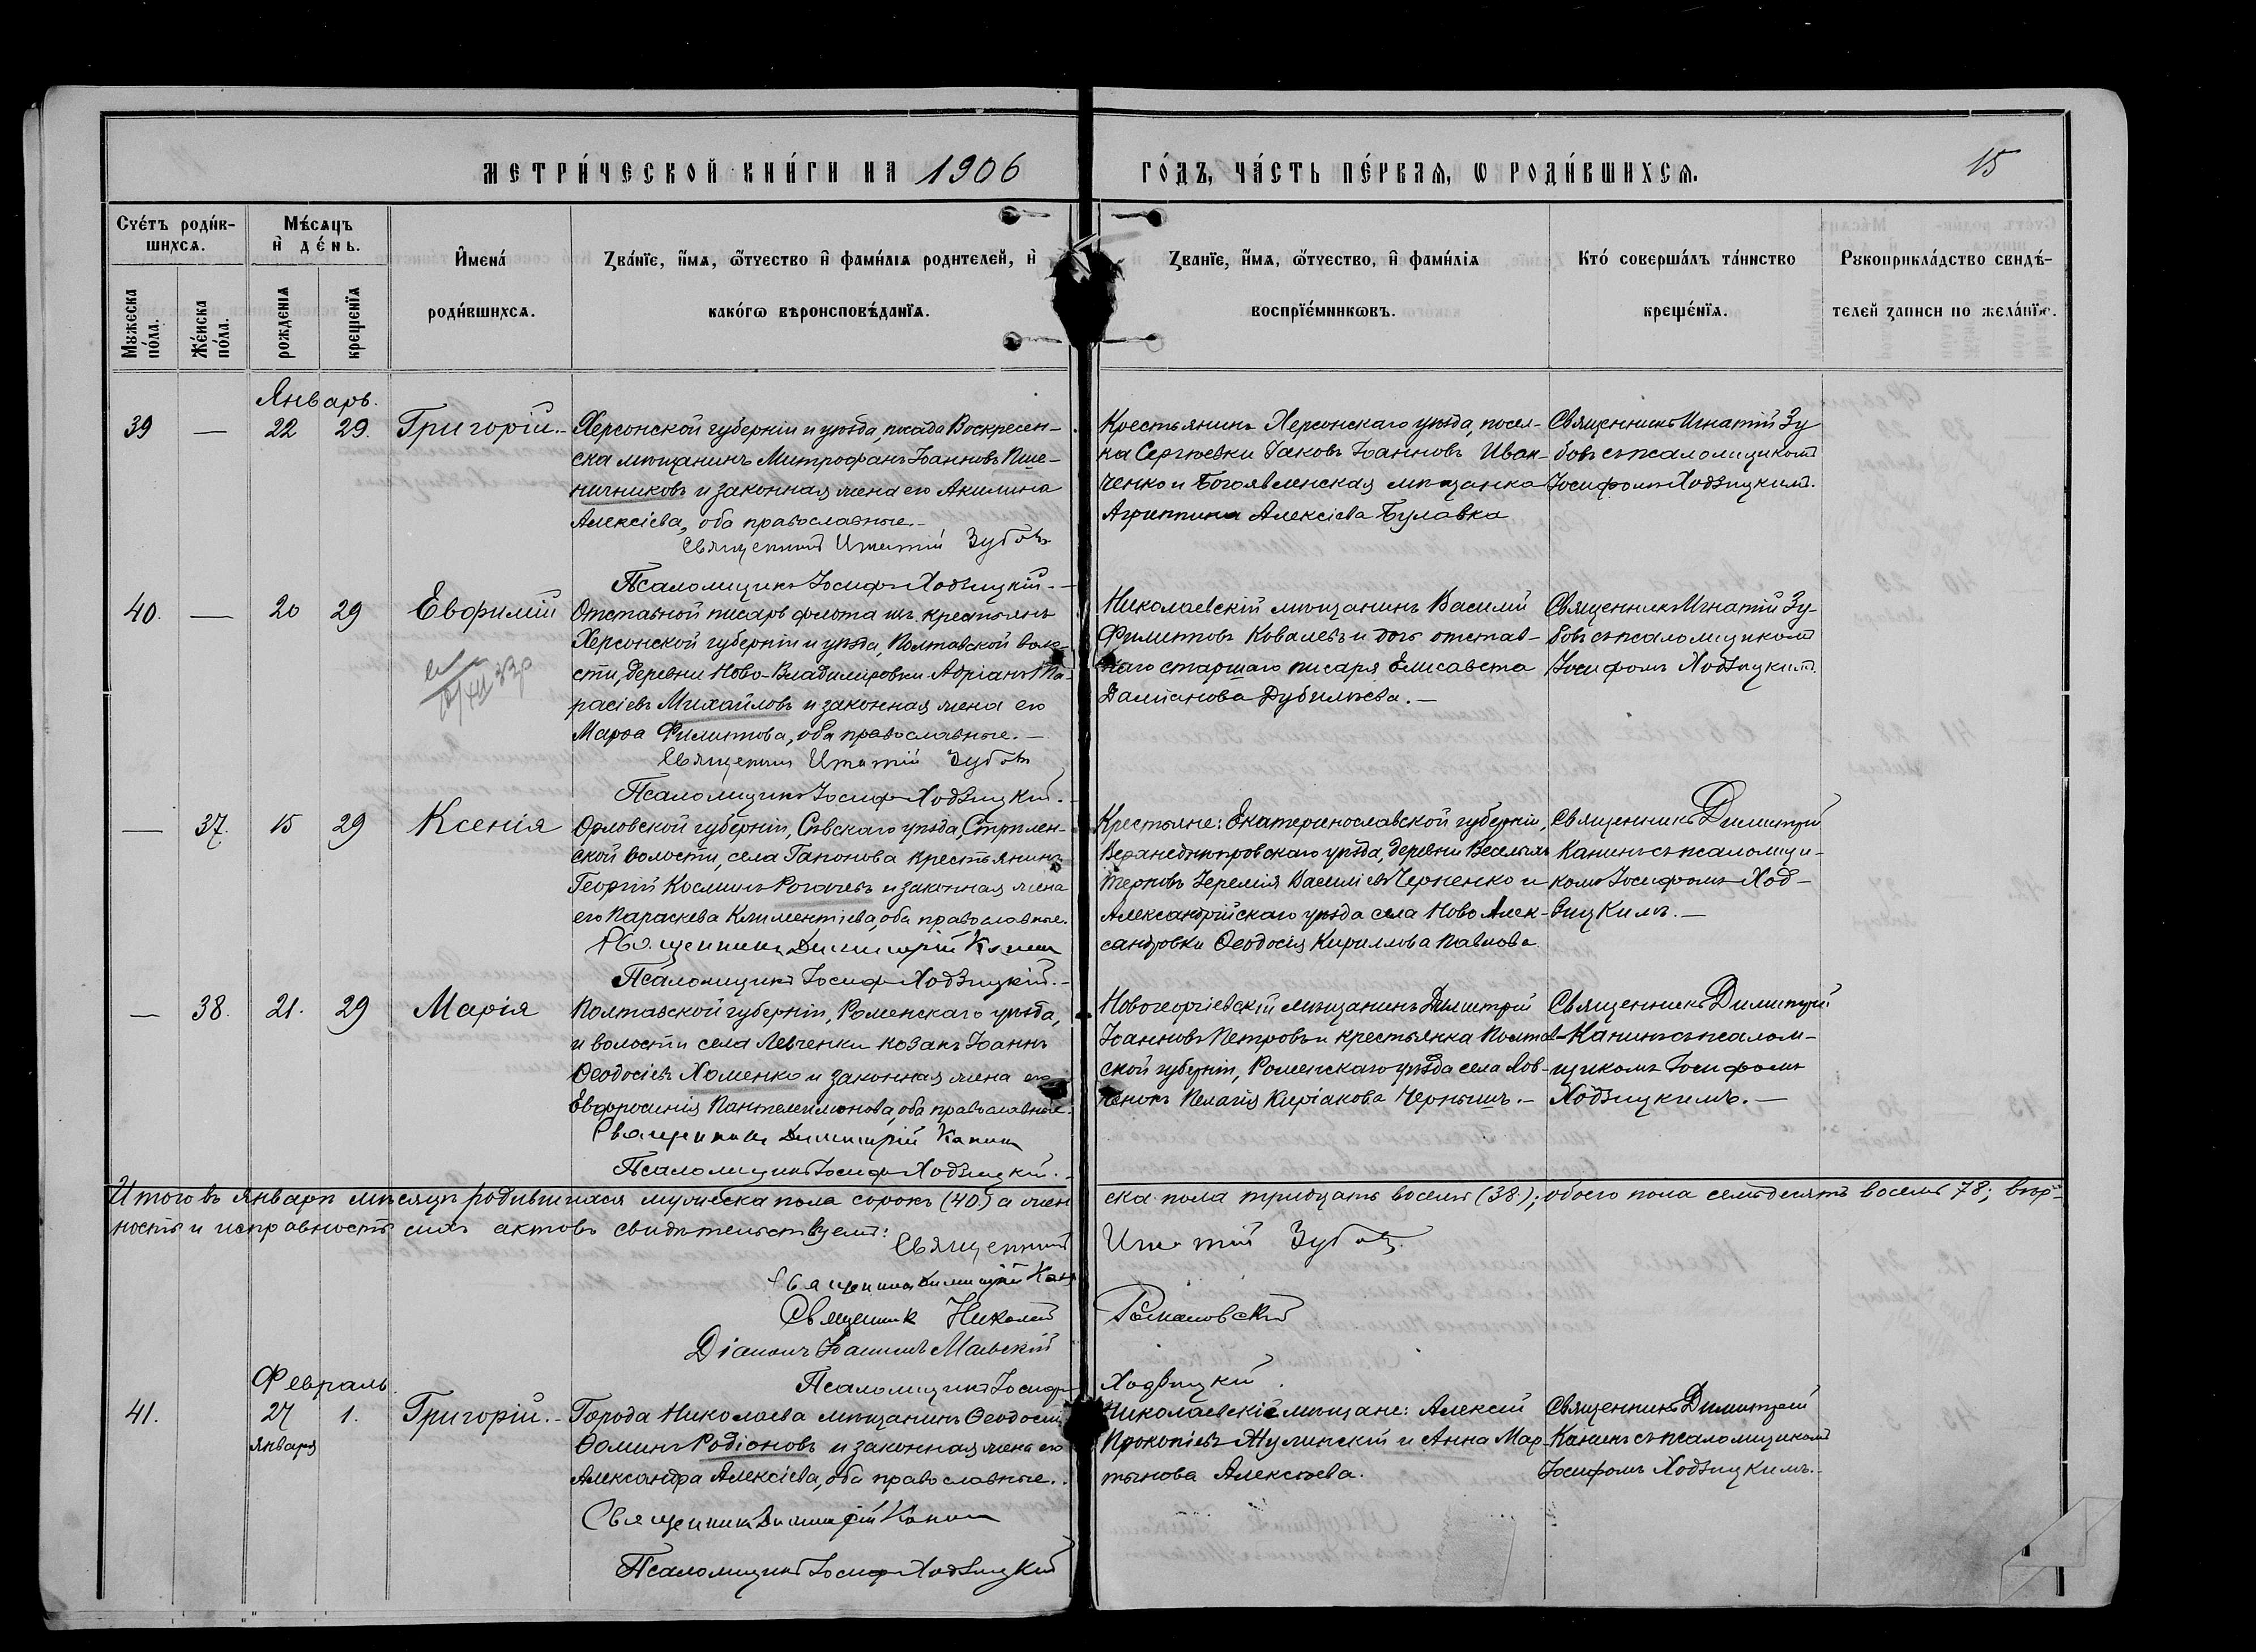 МЕТРИ́ЧЕСКОЙ КНИ́ГИ НА 1906 ГО́ДЪ, ЧА́СТЬ ПЕ́РВАЯ, Ѡ РОДИ́ВШИХСЯ.
15
Счéтъ роди́в-
шихся.
Мѣ́сяцъ
и҆ де́нь.
Мꙋжеска
по́ла.
Же́нска
по́ла.
рожденїя
крещенїя
И҆мена́
роди́вшихся.
Зва́нїе, и҆́мя, ѻ҆́тчество и҆ фами́лїя родителей, и҆
како́гѡ вѣроисповѣ́данїя.
Званїе, и҆́мя, ѻ҆́тчество, и҆ фами́лїя
воспрїе́мниковъ.
Кто́ соверша́лъ та́инство
креще́нїя.
Рꙋкоприкла́дство свидѣ́-
телей записи по жела́нїю.
Январь.
39 — 22 29. Григорій.
Херсонской губерніи и уѣзда, посада Воскресен-
ска мѣщанинъ Митрофанъ Іоанновъ Пше-
ничниковъ и законная жена его Акилина
Алексіева, оба православные.
Священникъ Игнатій Зубовъ
Псаломщикъ Іосифъ Ходзицкій.
Крестьянинъ Херсонскаго уѣзда, посел-
ка Сергѣевки Іаковъ Іоанновъ Иван-
ченко и Богоявленская мѣщанка
Агриппина Алексіева Булавка
Священникъ Игнатій Зу
бовъ съ псаломщикомъ
Іосифомъ Ходзицкимъ.
40. — 20 29 Евфимій
Отставной писарь флота изъ крестьянъ
Херсонской губерніи и уѣзда, Полтавской воло-
сти, деревни Ново-Владимировки Адріанъ
расіевъ Михайловъ и законная жена его
Марѳа Филиппова, оба православные. —
Священникъ Игнатій Зубовъ
Псаломщикъ Іосифъ Ходзицкій.
Николаевскій мѣщанинъ Василій
Филипповъ Ковалевъ и дочь отстав-
наго старшаго писаря Елисавета
Даміанова Дубилѣева. —
Священникъ Игнатій Зу-
бовъ съ псаломщикомъ
Іосифомъ Ходзицкимъ.
— 37. 15 29 Ксенія
Орловской губерніи, Сѣвскаго уѣзда,
ской волости, села Гапонова крестьянинъ
Георгій Косминъ Рогачевъ и законная жена
его Параскева Климентіева, оба православные.
Священникъ Димитрій Канин
Псаломщикъ Іосифъ Ходзицкій.
Крестьяне: Екатеринославской губерніи,
Верхнеднѣпровскаго уѣзда, деревни Веселыхъ
Терновъ Іеремія Василіевъ Черненко и
Александрійскаго уѣзда села Ново Алек-
сандровки Ѳеодосія Кириллова Павлова
Священникъ Димитрій
Канинъ съ псаломщи-
комъ Іосифомъ Ход-
зицкимъ. —
— 38. 21. 29 Марія
Полтавской губерніи, Роменскаго уѣзда,
и волости села Левченки козакъ Іоаннъ
Ѳеодосіевъ Хоменко и законная жена его
Евфросинія Пантелеимонова, оба православные.
Священникъ Димитрій Канин
Псаломщикъ Іосифъ Ходзицкій.
Новогеоргіевскій мѣщанинъ Димитрій
Іоанновъ Петровъ и крестьянка Полтав-
ской губерніи, Роменскаго уѣзда села
Пелагія Киріакова Чернышъ. —
Священникъ Димитрій
Канинъ съ псалом-
щикомъ Іосифомъ
Ходзицкимъ. —
Итого въ январѣ мѣсяцѣ родившихся мужеска пола сорокъ (40.) а жен ска пола тридцать восемь (38.); обоего пола семьдесятъ восемь 78; вѣр-
ность и исправность сихъ актовъ свидѣтельствуемъ:
Священникъ Игнатій Зубовъ.
Священникъ Димитрій Канин
Священник Николай Романовскій
Діаконъ Іоаннъ Маевскій
Псаломщикъ Іосифъ Ходзицкій.
Февраль.
41. 27 1. Григорій. —
января
Города Николаева мѣщанинъ Ѳеодосій
Ѳоминъ Родіоновъ и законная жена его
Александра Алексіева, оба православные.
Священникъ Димитрій Канин
Псаломщикъ Іосифъ Ходзицкій
Николаевскіе мѣщане: Алексій
Прокопіевъ Жулинскій и Анна Мар-
тынова Алексѣева.
Священникъ Димитрій
Канинъ съ псаломщикомъ
Іосифомъ Ходзицкимъ.